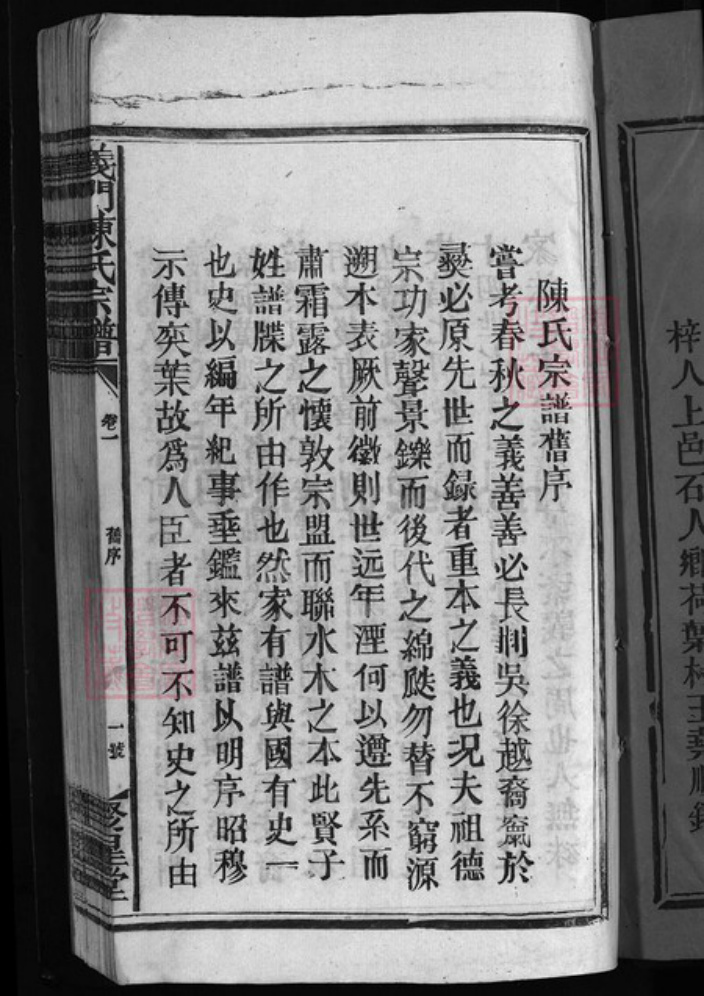 梓人上邑石人鄉荷葉
陳氏宗譜舊序
嘗考春秋之義善善必長荆吳徐越裔窳於
㷼必原先世而録者重本之義也况夫祖德
宗功家聲景鑠而後代之綿瓞勿替不窮源
遡本表厥前徽則世远年湮何以遵先系而
肅霜露之懷敦宗盟而聯水木之本此賢子
姓譜牒之所由作也然家有譜與國有史一
也史以編年紀事垂鑑來兹譜以明序昭穆
示傳奕葉故為人臣者不可不知史之所由
義門陳氏宗譜
卷一
舊序
一號
聚星堂